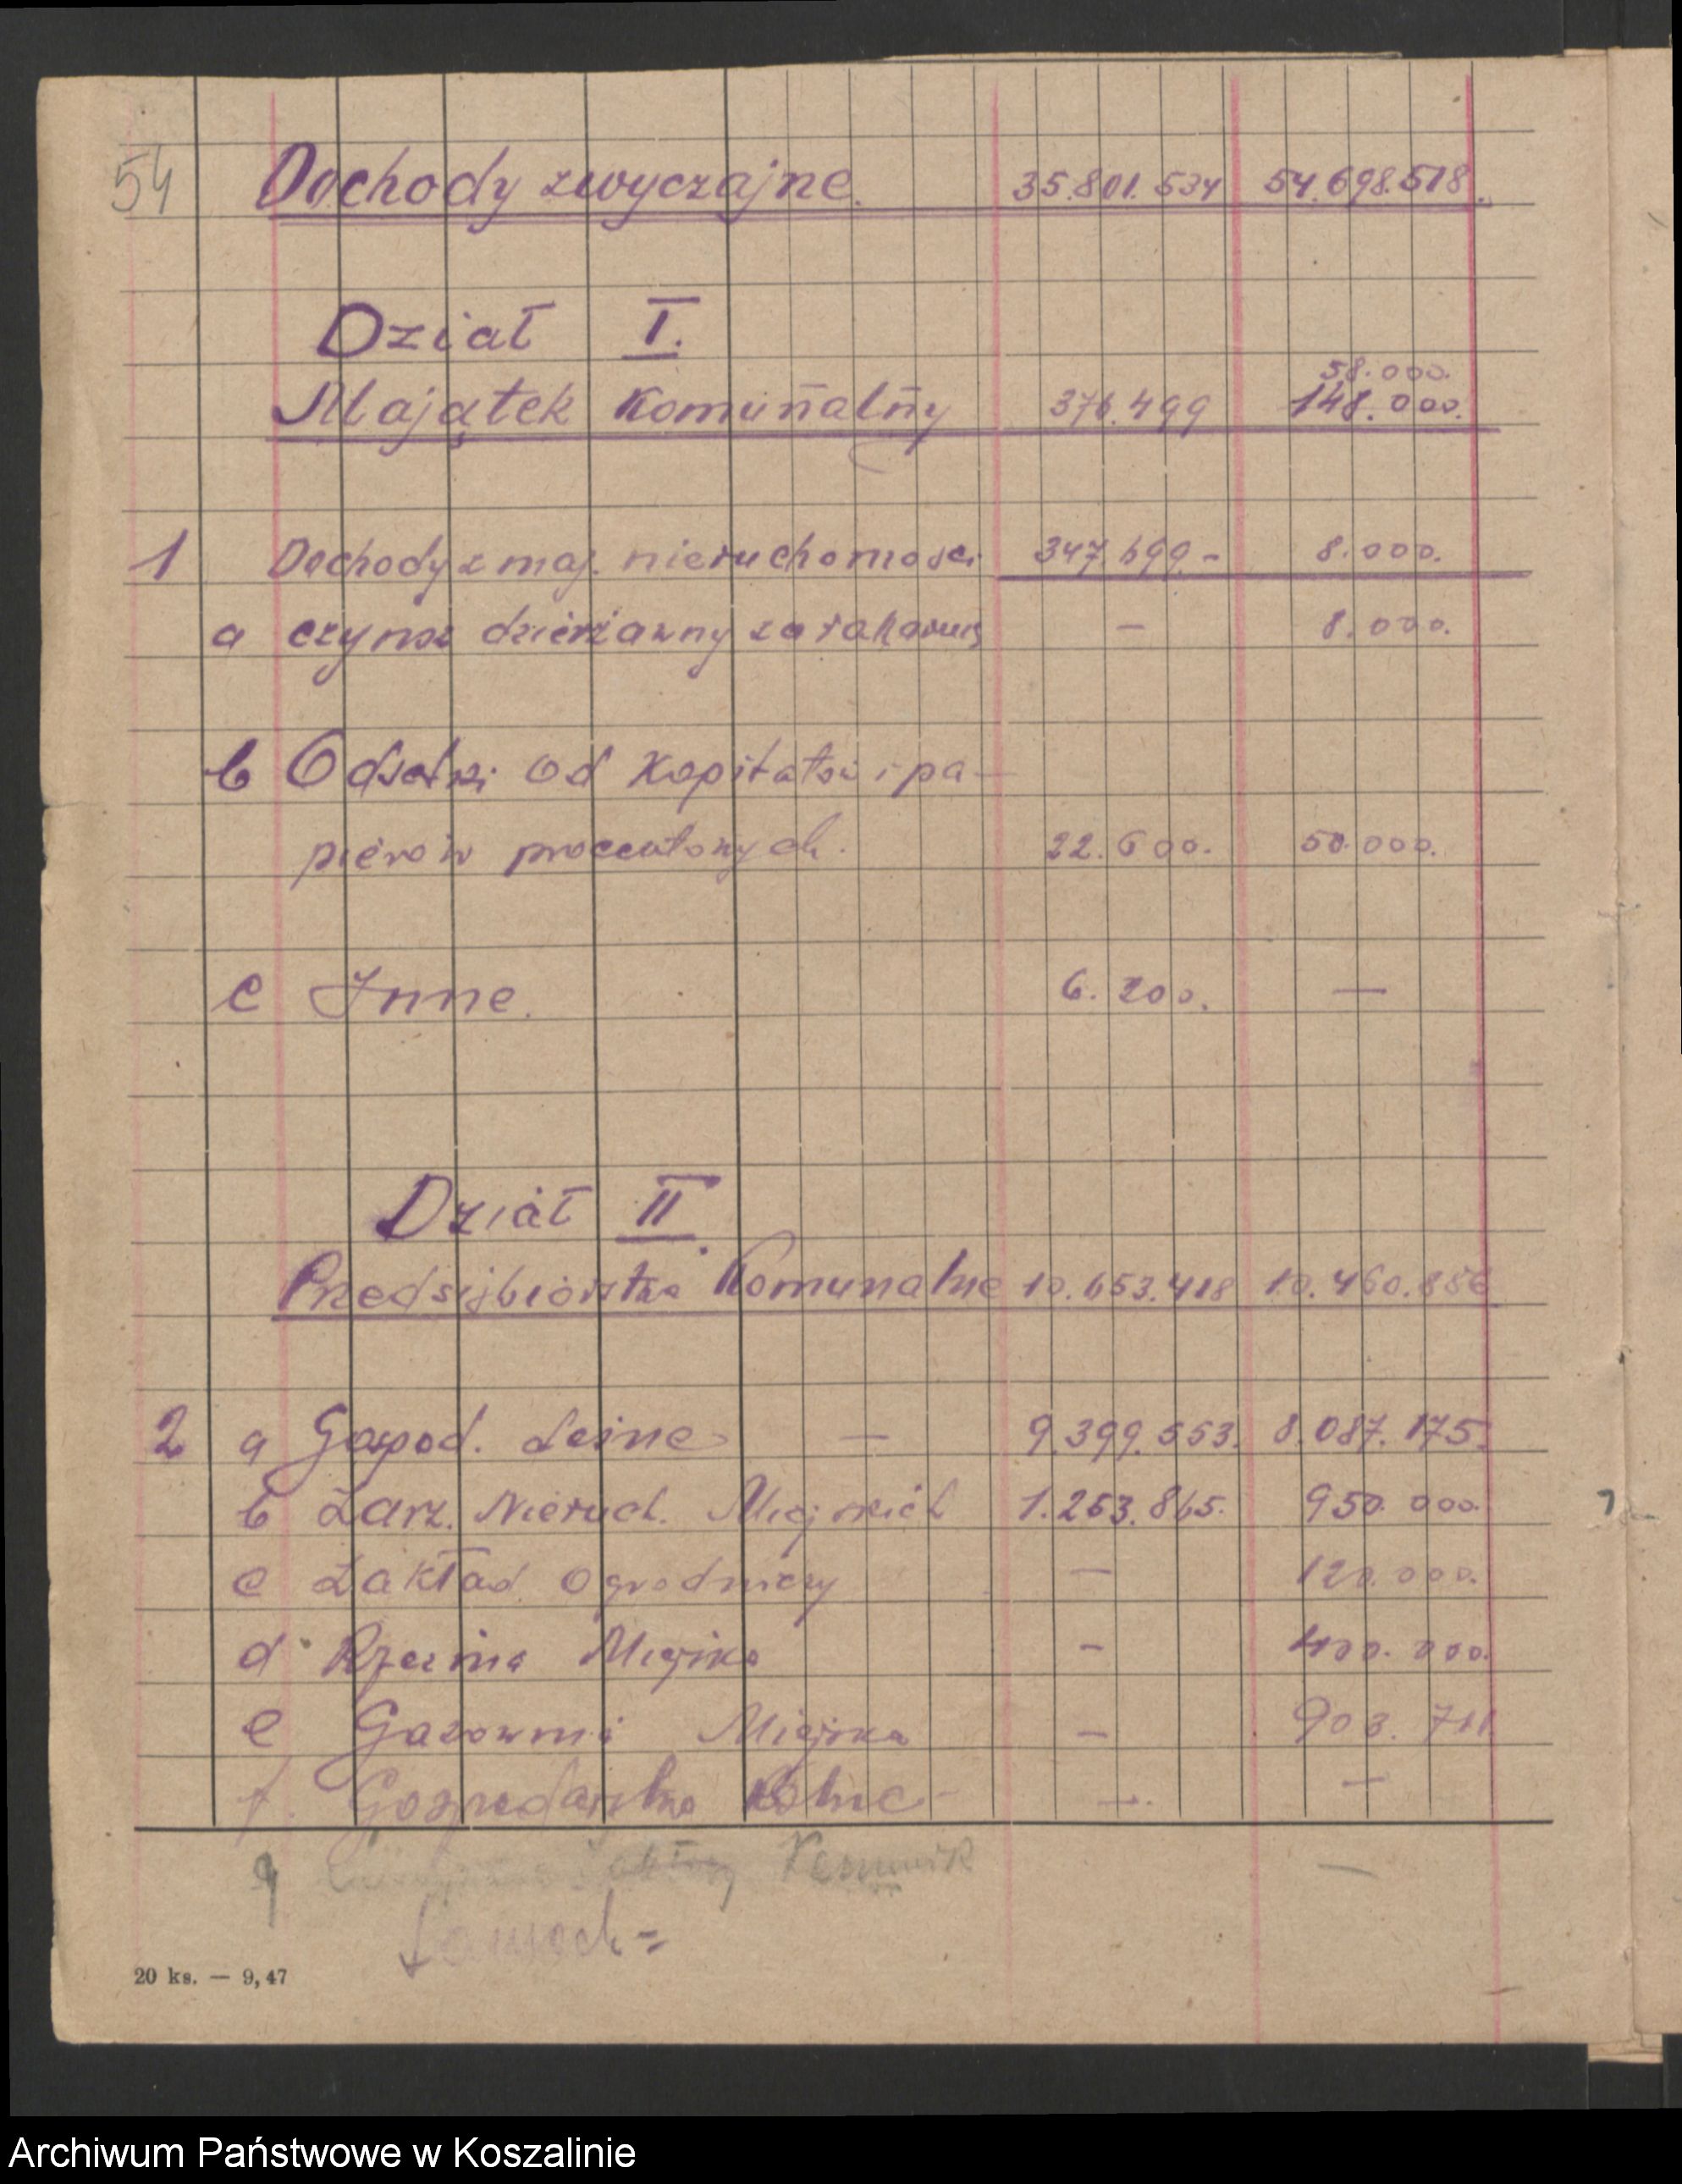 54 Dochody zwyczajne. 35.801.534 54.698.518.
Dział I.
58.000.
Majątek Komunalny 376.499 148.000.
1 Dochody z maj. nieruchomości 347.699.- 8.000.
a czynsz dzierżawny za rakarnię — 8.000.
b Odsetki od Kapitałów i pa-
pierów procentowych. 22.600. 50.000.
c Inne. 6.200. —
Dział II.
Przedsiębiorstwa Komunalne 10.653.418 10.460.886
2 a Gospod. Leśne — 9.399.553. 8.087.175.
b Zarz. Nieruch. Miejskich 1.253.865. 950.000.
c Zakład Ogrodniczy — 120.000.
d Rzeźnia Miejska — 400.000.
e Gazownia Miejska — 903.711
f. Gospodarstwo Rolne - —. —
g —
20 ks. — 9,47
Archiwum Państwowe w Koszalinie